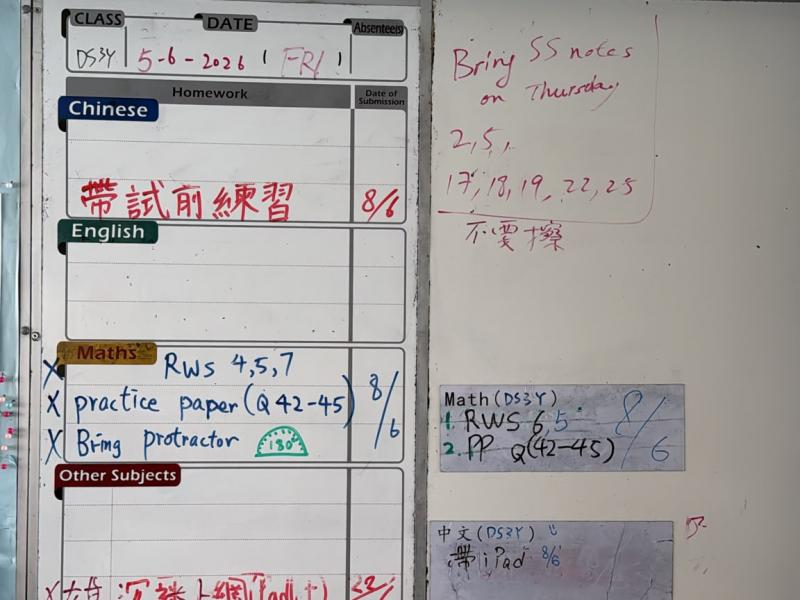 CLASS DATE Absentee(s)
DS3Y 5-6-2026 ( FRI )
Homework Date of Submission
Chinese
帶試前練習 8/6
English
Maths
X RWS 4,5,7
X practice paper (Q 42-45) 8/6
X Bring protractor 180°
Other Subjects
沉迷上網(iPad
Bring SS notes
on Thursday
2, 5,
17, 18, 19, 22, 25
不要擦
Math (DS3Y)
1. RWS 6, 5 8/6
2. PP Q(42-45)
中文(DS3Y)
帶 iPad 8/6